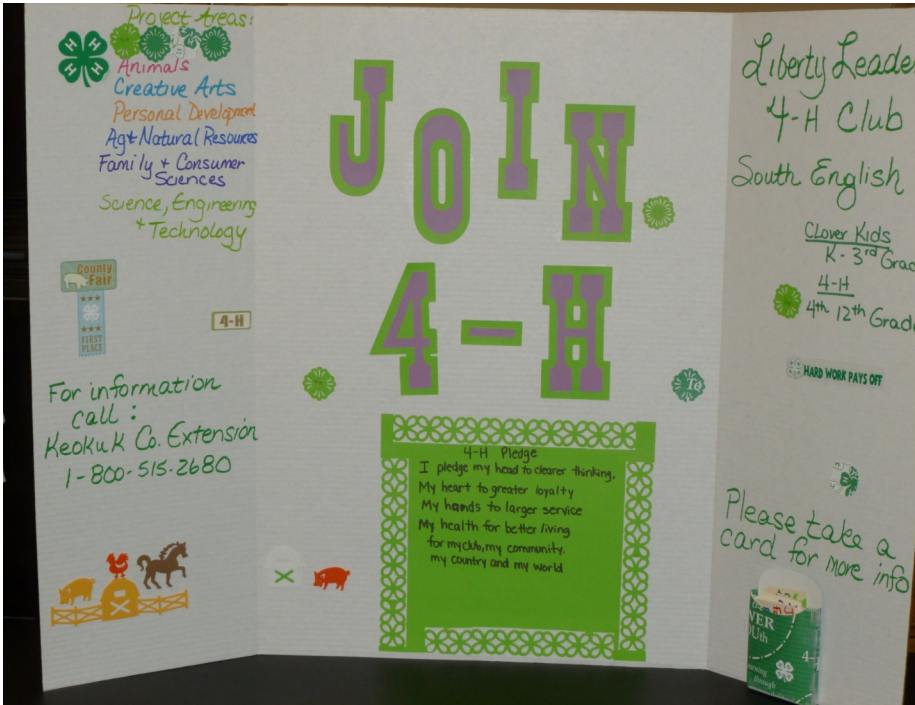 Project Areas:
H H
H H
Animals
Creative Arts
Personal Development
Ag & Natural Resources
Family + Consumer
Sciences
Science, Engineering
+ Technology
County
Fair
FIRST
PLACE
4-H
For information
call :
Keokuk Co. Extension
1-800-515-2680
JOIN
4-H
Te
4-H Pledge
I pledge my head to clearer thinking,
My heart to greater loyalty
My hands to larger service
My health for better living
for my club, my community,
my country and my world
Liberty Leade
4-H Club
South English
Clover Kids
K - 3rd Grad
4-H
4th 12th Grade
HARD WORK PAYS OFF
Please take a
card for more info
VER
OUth
4-
through